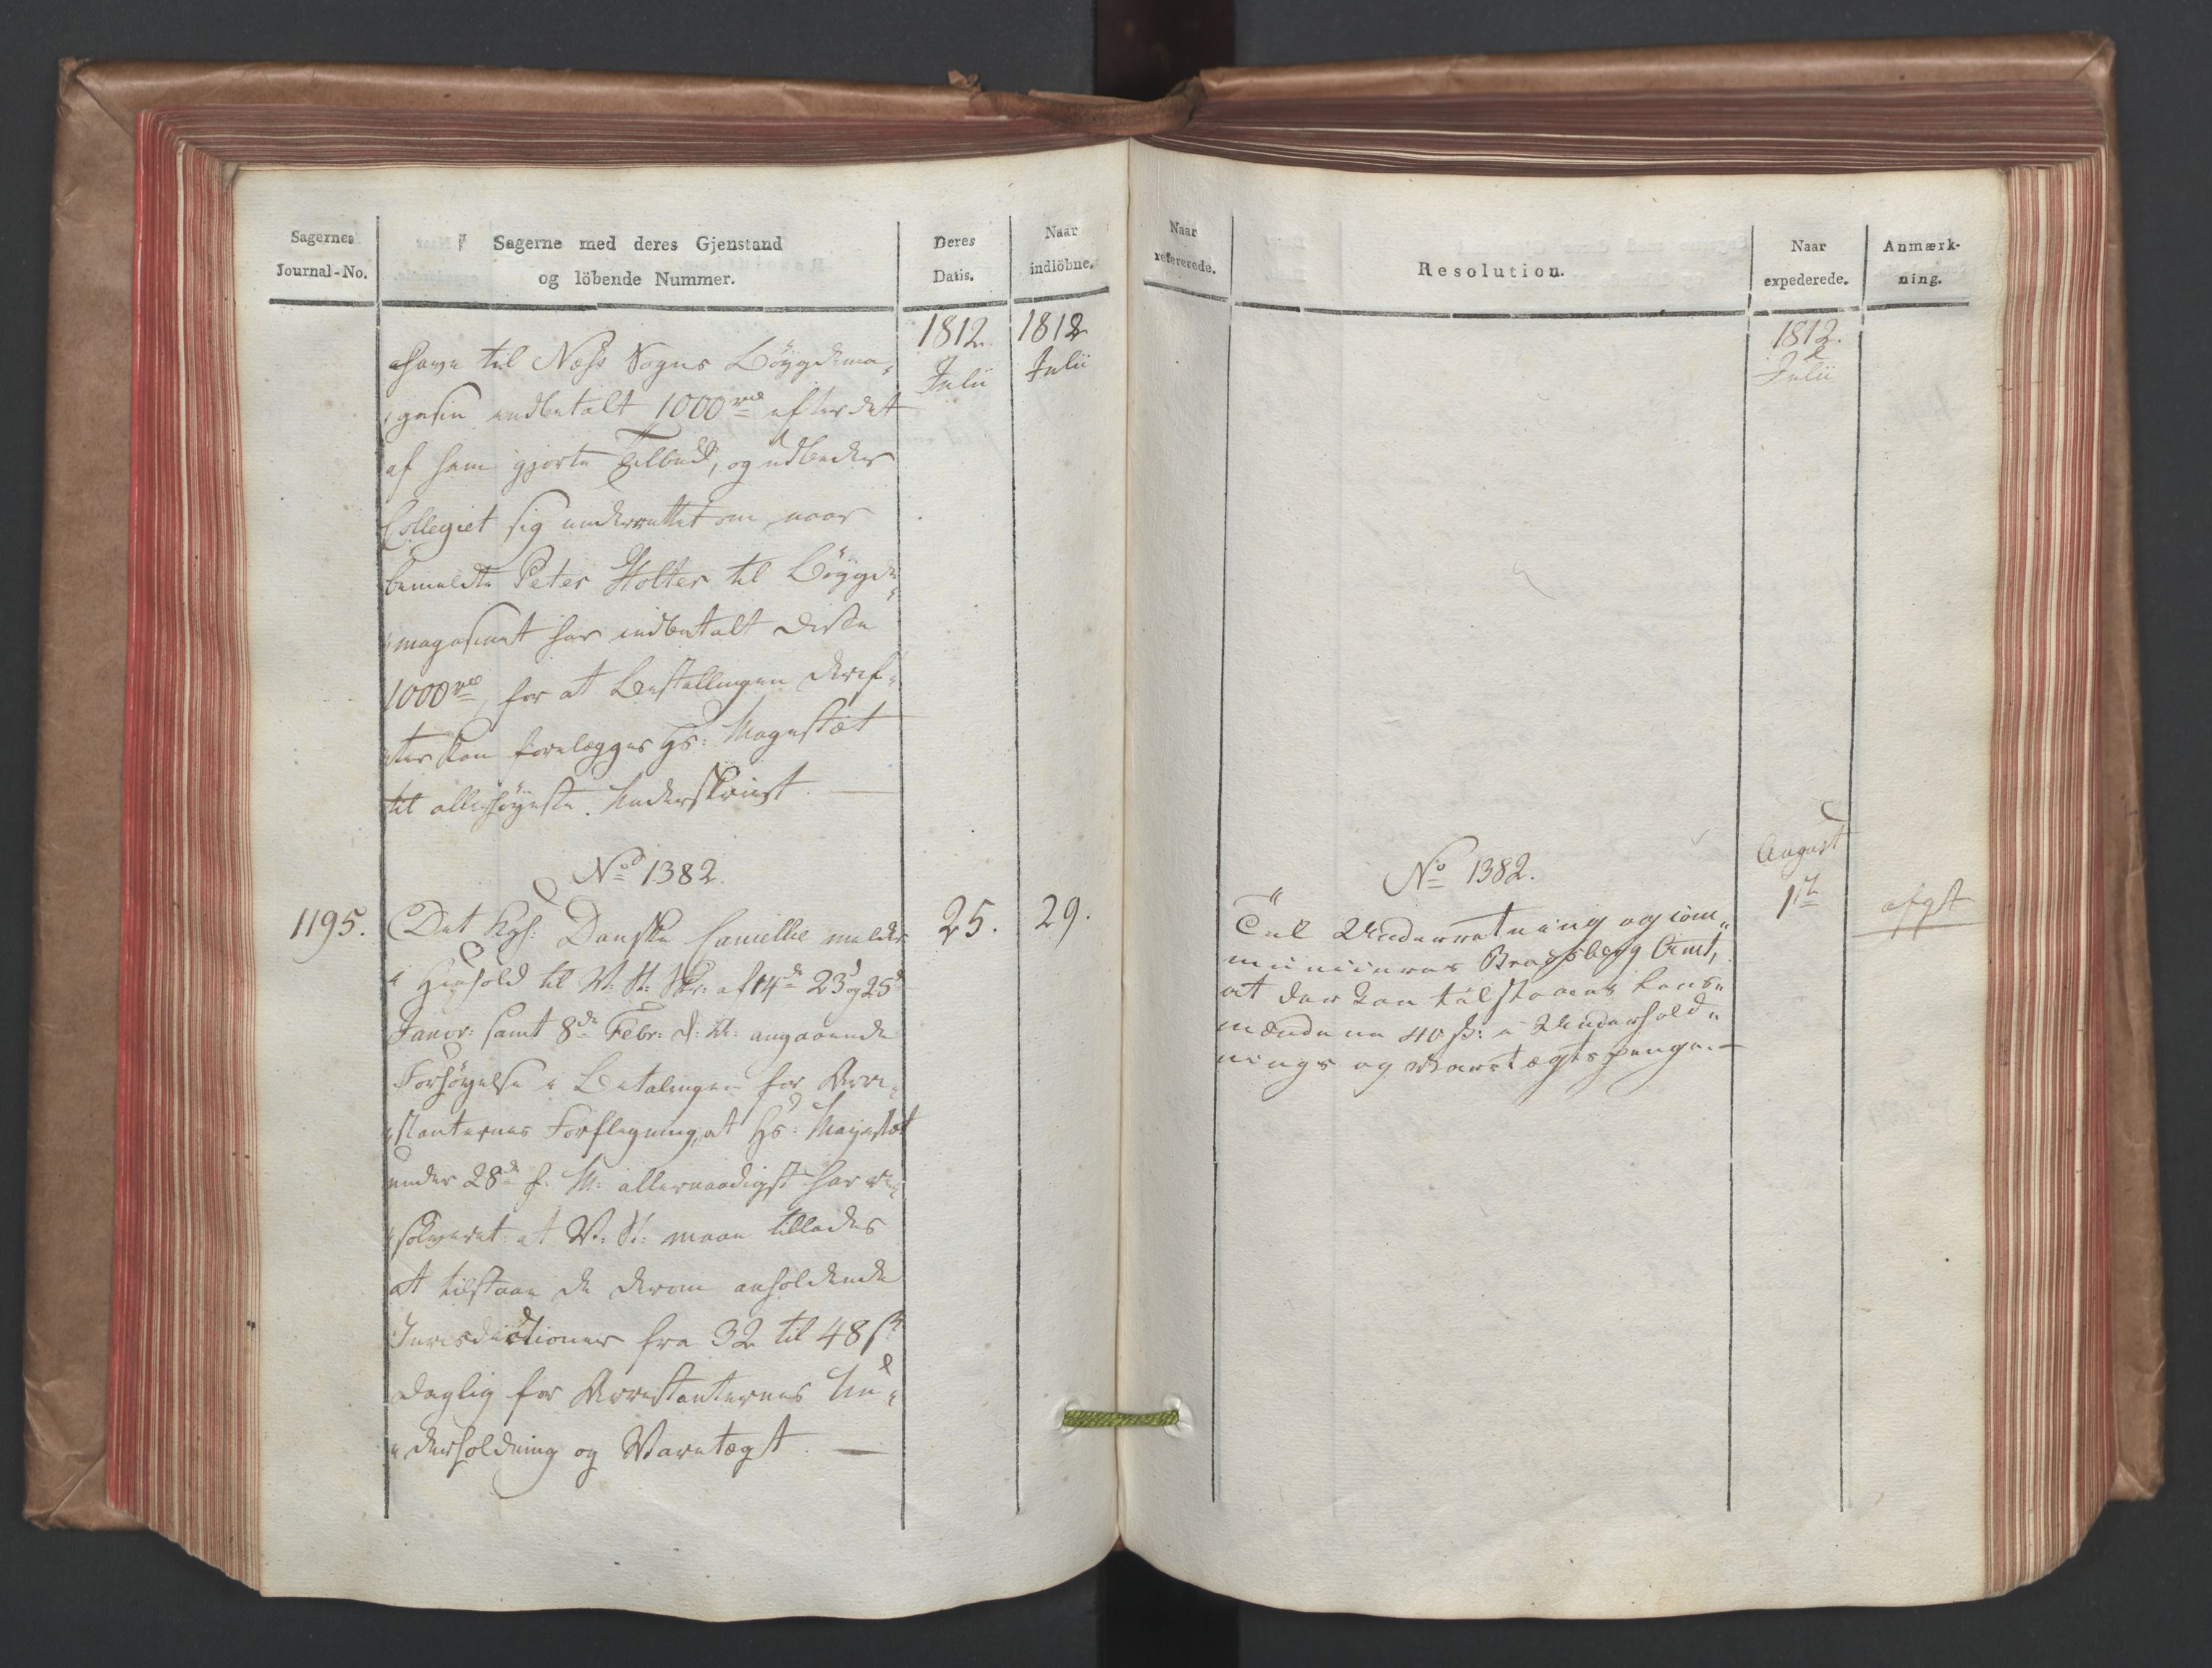 Sagernes
Journal-No.
Sagerne med deres Gjenstand
og löbende Nummer.
Deres
Datis.
Naar
indlöbne.
1812. 1812
Julii Julii
have til Næss Sogns Böygdema„
„gasin indbetalt 1000 rd efter det
af ham gjorte Tilbud, og udbeder
Collegiet sig underrettet om, naar
bemeldte Peter Holter til Böygde„
„magasinet har indbetalt disse
1000 rd, for at Bestallingen deref„
„ter kan forelægges Hs: Majestæt
til allerhöyeste Underskrivt. —
No 1382.
1195. Det kgl: Danske Cancellie melder 25. 29.
i Henhold til V. St: Skr: af 14de 23d og 25d
Janvr: samt 8de Febr: d: A: angaaende
Forhöyelse i Betalingen for Arre„
„stanternes Forflegning, at Hs: Majestæt
under 28de f: M: allernaadigst har re„
„solveret: at V: St: maae tillades
at tilstaae de derom anholdende
Jurisdictioner fra 32 til 48 s
daglig for Arrestanternes Un„
„derholdning og Varetægt. —
Naar
refererede.
Resolution.
Naar
expederede.
Anmærk-
ning.
1812.
Julii
August
No 1382.
1st
afgt
Til Underretning og com„
municeres Bradsberg Amt,
at der kan tilstaaes Lens„
mændene 40 s: i Underhold„
nings og Varetægtspenge. —